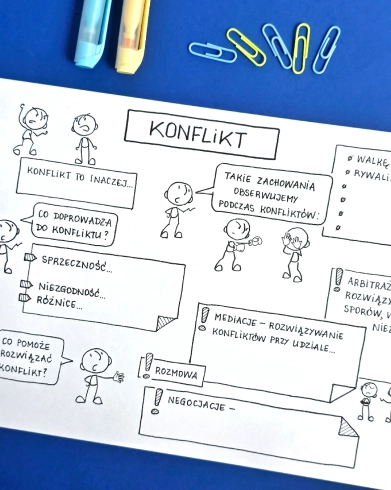 KONFLIKT
KONFLIKT TO INACZEJ...
TAKIE ZACHOWANIA
OBSERWUJEMY
PODCZAS KONFLIKTÓW:
WALKĘ
RYWALI
CO DOPROWADZA
DO KONFLIKTU?
SPRZECZNOŚĆ...
NIEZGODNOŚĆ...
RÓŻNICE...
ARBITRAŻ
ROZWIĄZY
SPORÓW, W
NIEZ
MEDIACJE – ROZWIĄZYWANIE
KONFLIKTÓW PRZY UDZIALE...
CO POMOŻE
ROZWIĄZAĆ
KONFLIKT?
ROZMOWA
NEGOCJACJE –